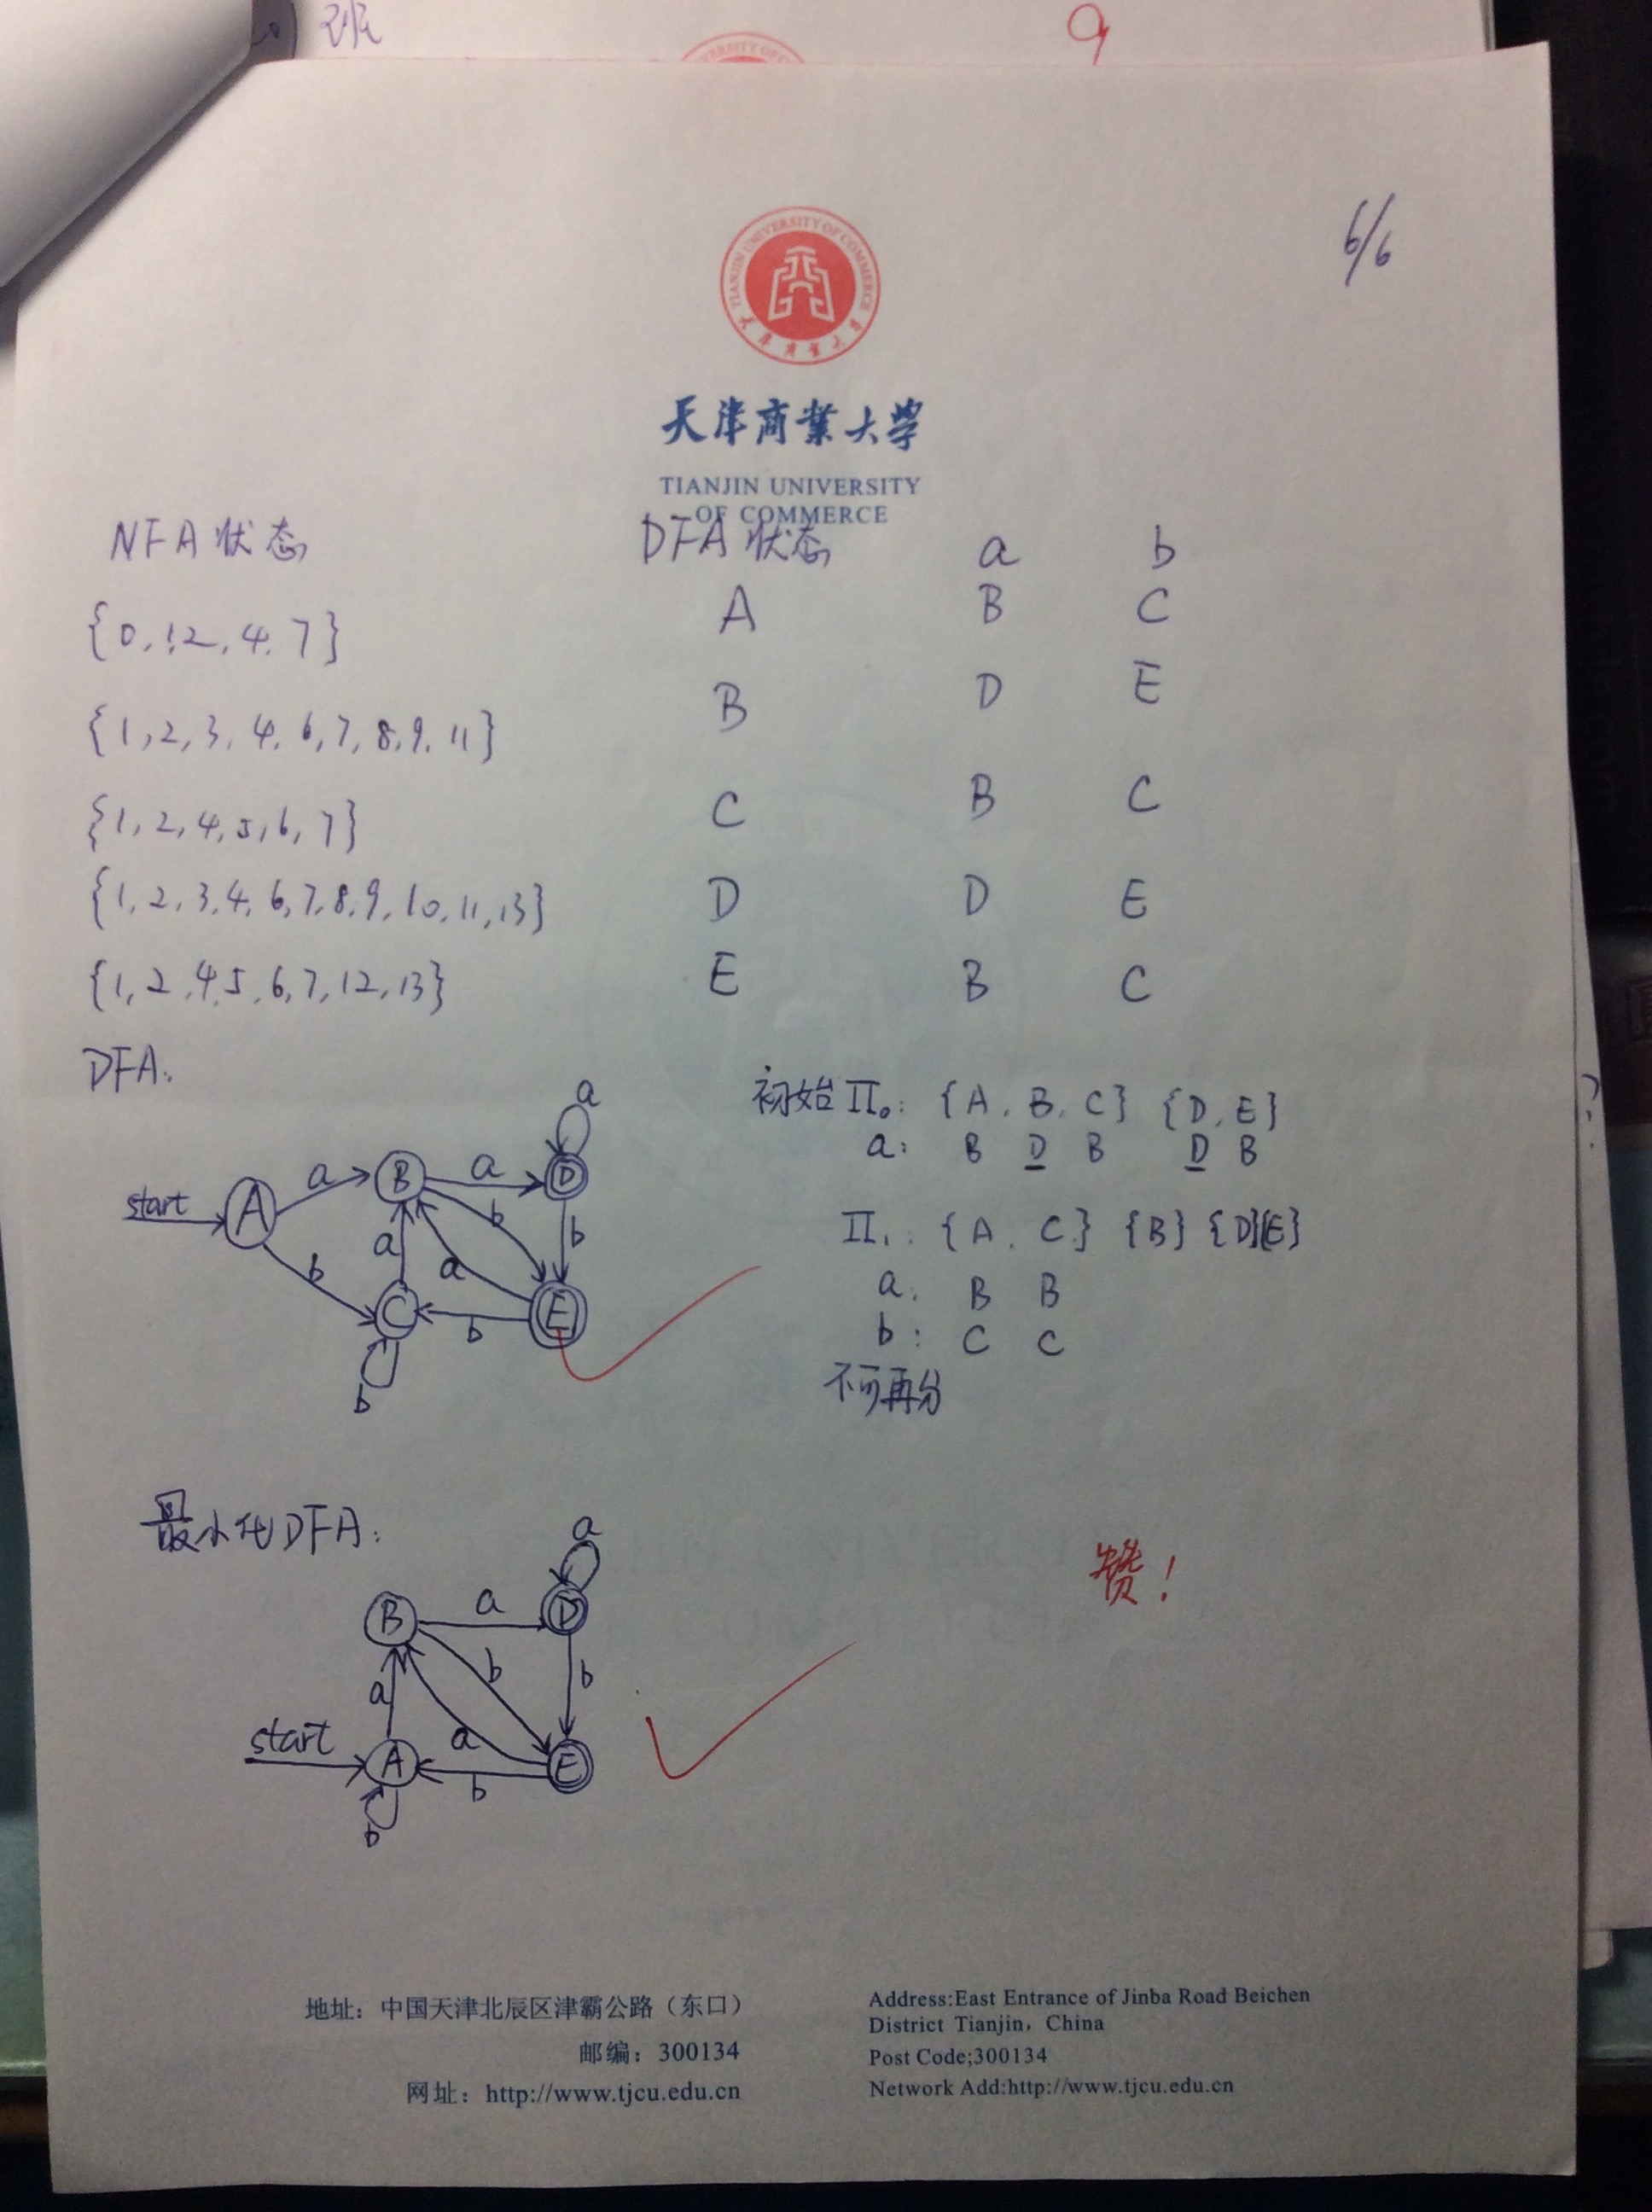 班
9
6/6
TIANJIN UNIVERSITY OF COMMERCE
天津商業大学
天津商業大学
TIANJIN UNIVERSITY
OF COMMERCE
NFA状态 DFA状态 a b
{0,1,2,4,7} A B C
{1,2,3,4,6,7,8,9,11} B D E
{1,2,4,5,6,7} C B C
{1,2,3,4,6,7,8,9,10,11,13} D D E
{1,2,4,5,6,7,12,13} E B C
DFA:
start A a B a D a
b a b a b
C b E
b
初始Π₀: {A,B,C} {D,E}
a: B D B D B
Π₁: {A,C} {B} {D}{E}
a: B B
b: C C
不可再分
最小化DFA:
a
B a D
a b a b
start A b E
b
赞!
地址：中国天津北辰区津霸公路（东口）
邮编：300134
网址：http://www.tjcu.edu.cn
Address:East Entrance of Jinba Road Beichen
District Tianjin, China
Post Code;300134
Network Add:http://www.tjcu.edu.cn